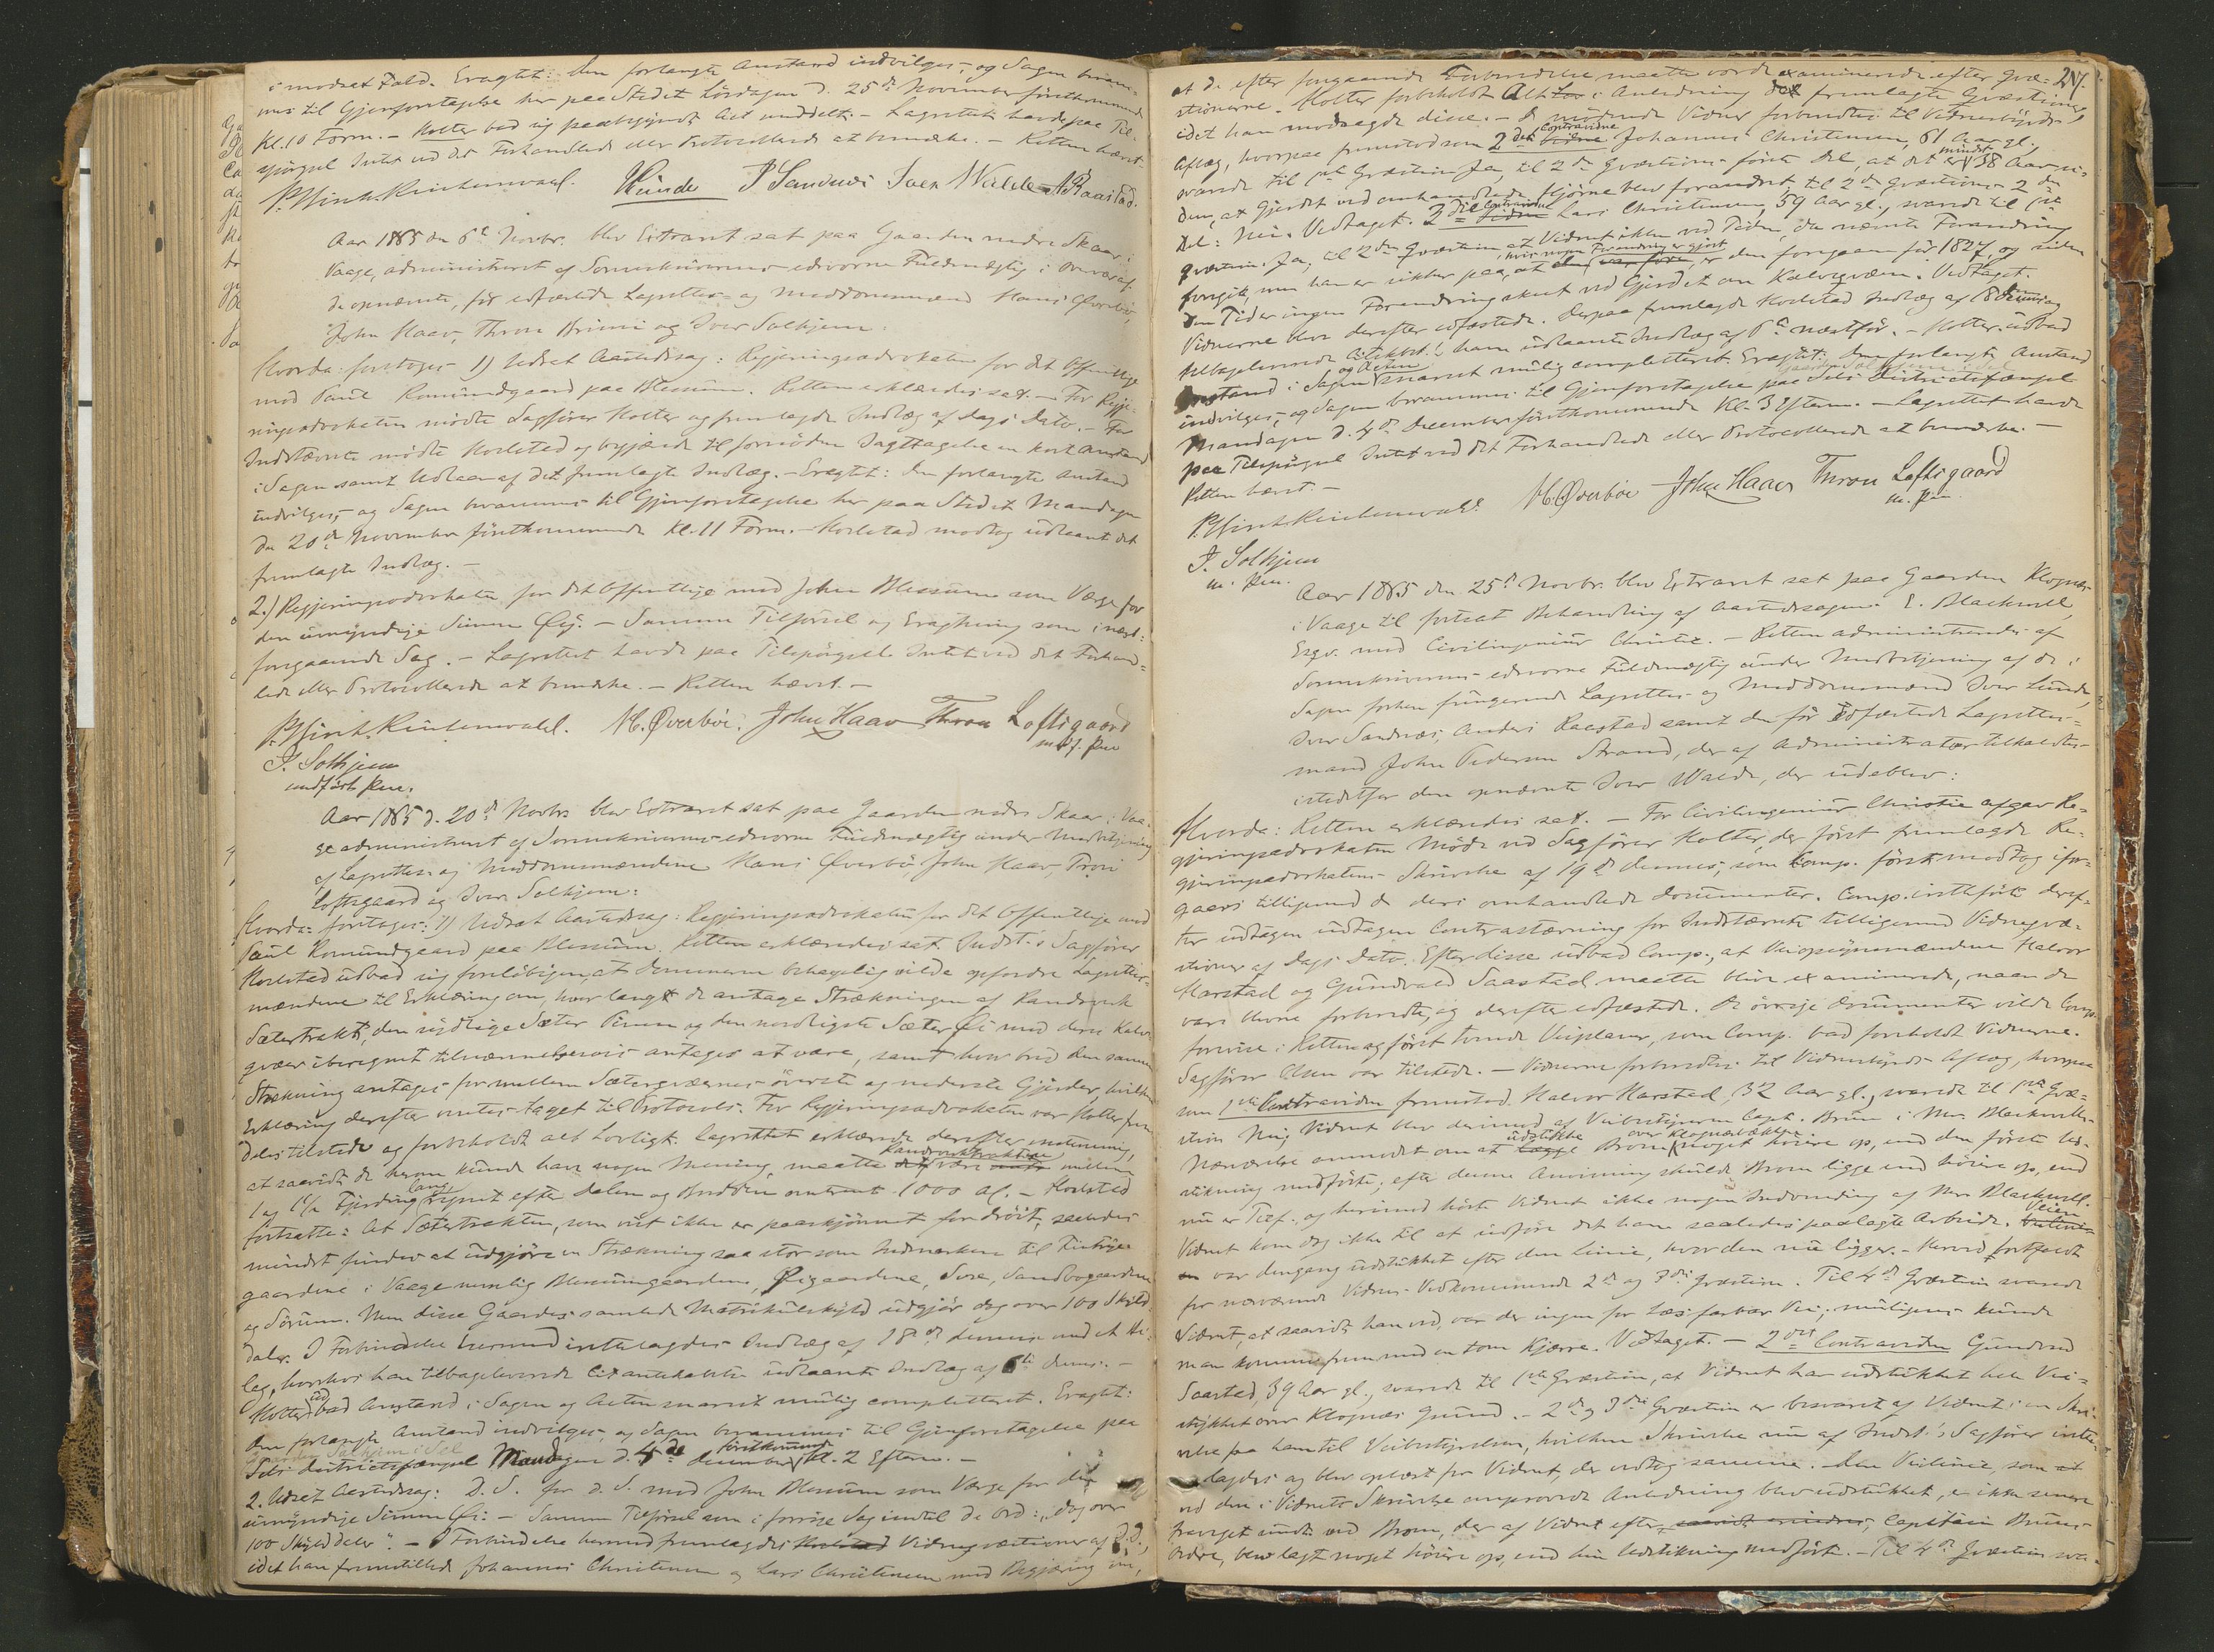 i modsat Fald. Eragtet: Den forlangte Anstand indvilges, og Sagen beram-
mes til Gjenforetagelse her paa Stedet Lördagen d. 25de November förstkommende
Kl. 10 Form. – Kolter bad sig paabegyndt Act meddelt. – Lagrettet havde paa Til-
spörgsel Intet ved det Forhandlede eller Protocollerede at bemærke. – Retten hævet.
Lunde I Sandnæs Iver Walde A Raastad.
Aar 1885 den 6te Novbr. blev Extraret sat paa Gaarden nedre Skaar i
Vaage, administreret af Sorenskriverens edsvorne Fuldmægtig i Overvær af
de opnævnte, för edfæstede Lagrettes- og Meddomsmænd Hans Överbö,
John Haav, Thron Brimi og Iver Solhjem:
Hvorda: foretoges 1) Udsat Aastedssag: Regjeringsadvokaten for det Offentlige
mod Paul Romundgaard paa Blessum. Retten erklæredes sat. – For Regje-
ringsadvokaten mödte Sagförer Kolter og fremlagde Indlæg af Dags Dato. – For
Indstævnte mödte Korlstad og begjærede til fornöden Iagttagelse en kort Anstand
i Sagen samt Udlaan af det fremlagte Indlæg. – Eragtet: Den forlangte Anstand
indvilges, og Sagen berammes til Gjenforetagelse her paa Stedet Mandagen
den 20de November förstkommende Kl. 11 Form. – Korlstad modtog udlaant det
fremlagte Indlæg. –
2.) Regjeringsadvokaten for det Offentlige mod John Blessum som Værge for
den umyndige Simen Öy. – Samme Tilförsel og Eragtning som i næst-
foregaaende Sag. – Lagrettet havde paa Tilspörgsel Intet ved det Forhand-
lede eller Protocollerede at bemærke. – Retten hævet. –
H. Överböe. John Haav Thron Loftsgaard
m. f. Pen
I. Solhjem
medfört Pen.
Aar 1885 d. 20de Novbr. blev Extraret sat paa Gaarden nedre Skaar i Vaa-
ge administreret af Sorenskriverens edsvorne Fuldmægtig under Medbetjening
af Lagrettes- og Meddomsmændene Hans Överbö, John Haav, Tron
Loftsgaard og Iver Solhjem:
Hvorda: foretoges: 1) Udsat Aastedssag: Regjeringsadvokaten for det Offentlige mod
Paul Romundgaard paa Blessum. Retten erklæredes sat. Indst.s Sagförer
Korlstad udbad sig foreløbigen, at Dommeren behagelig vilde opfordre Lagrettes-
mændene til Erklæring om, hvor langt de antage Strækningen af Randsverk
Sætertrakt, den sydligste Sæter Sinen og den nordligste Sæter Öi med dens Kalve-
græs iberegnet tilnærmelsesvis antages at være, samt hvor bred den samme
Strækning antages for mellem Sætergrænsens överste og nederste Gjerder, hvilken
Erklæring derefter ventes taget til Protocols. For Regjeringsadvokaten var Kolter frem-
deles tilstede og forbeholdt alt Lovligt. Lagrettet erklærede derefter enstemmig,
at saavidt de herom kunde have nogen Mening, maatte Randsverktrakten være mellem
1 og 1½ Fjerding lang, regnet efter Dalen og Bredden omtrent 1000 Al. – Korlstad
fortsatte: At Sætertrakten, som vist ikke er paaskjönnet for dröit, saaledes
mindst findes at udgjöre en Strækning saa stor som Indmarken til
gaardene i Vaage nemlig Blessumgaardene, Öigaardene, Svee, Sandbogaardene
og Sörum. Men disse Gaardes samlede Matrikulskyld udgjör dog over 100 Skyld-
daler. I Forbindelse hermed irettelagdes Indlæg af 18de dennes med et Bi-
lag, hvorhos han tilbageleverede Citantskabets udlaante Indlæg af 6te dennes. –
Kolter udbad Anstand i Sagen og Acten snarest mulig completteret. Eragtet:
Den forlangte Anstand indvilges, og Sagen berammes til Gjenforetagelse paa
Gaarden Solhjem i Sel
Sels Districtsfængsel Mandagen d. 4de December förstkommende Kl. 2 Efterm. –
2. Udsat Aastedssag: D. S. for d. S. mod John Blessum som Værge for den
umyndige Simen Öi: – Samme Tilförsel som i forrige Sag indtil de Ord: „dog over
100 Skylddaler“. – I Forbindelse hermed fremlagdes Korlstad Vidneqvæstioner af D. D.,
idet han fremstillede Johannes Christensen og Lars Christensen med Begjæring om,
271.
at de efter foregaaende Forberedelse maatte vorde examinerede efter Qvæ-
stionerne. Kolter forbeholdt Alt Lov i Anledning de fremlagte Qvæstioner,
idet han modsagde disse. – De mödende Vidner forberedtes til Vidnesbyrds
Aflæg, hvorpaa fremstod som 2det Contravidne Johannes Christensen, 61 Aar gl.,
svarede til 1ste Qvæstion Ja, til 2den Qvæstions förste Del, at det er mindst 38 Aar si-
den, at Gjerdet ved omhandlede Hjörne blev forandret; til 2den Qvæstions 2den
Del: Nei. Vedtaget. 3die Contravidne Lars Christensen, 59 Aar gl., svarede til 1ste
Qvæstion Ja, til 2den Qvæstion at Vidnet ikke ved Tiden, da nævnte Forandring
foregik, men han er sikker paa, at hvis nogen Forandring er gjort, er den foregaaen för 1827, og siden
den Tid er ingen Forandring skeet ved Gjerdet om Kalvegræsn. Vedtaget.
Vidnerne blev derefter edfæstede. Derpaa fremlagde Korlstad Indlæg af 18 dennes og
tilbageleverede Citskbts. ham udlaante Indlæg af 6te næstför. – Kolter udbad
Anstand i Sagen og Acten snarest mulig completteret. Eragtet: Den forlangte Anstand
Gaarden Solhjem i Sel
indvilges, og Sagen berammes til Gjenforetagelse paa Sels Districtsfængsel
Mandagen d. 4de December förstkommende Kl. 3 Efterm. – Lagrettet havde
paa Tilspörgsel Intet ved det Forhandlede eller Protocollerede at bemærke. –
Retten hævet. –
H. Överböe John Haav Thron Loftsgaard
m. Pen.
I. Solhjem
m. Pen.
Aar 1885 den 25de Novbr. blev Extraret sat paa Gaarden Klognæs
i Vaage til fortsat Behandling af Aastedssagen E. Blackwell
Esqv. mod Civilingeniör Christie. – Retten administreredes af
Sorenskriverens edsvorne Fuldmægtig under Medbetjening af de i
Sagen forhen fungerende Lagrettes- og Meddomsmænd Iver Lunde,
Iver Sandnæs, Anders Raastad samt den för Edfæstede Lagrettes-
mand John Pedersen Strand, der af Administrator tilkaldtes
istedetfor den opnævnte Iver Walde, der udeblev:
Hvorda: Retten erklæredes sat. – For Civilingeniör Christie afgav Re-
gjeringsadvokaten Möde ved Sagförer Kolter, der först fremlagde Re-
gjeringsadvokatens Skrivelse af 19de dennes, som Comp. först modtog ifor-
gaars tilligemed de deri omhandlede Documenter. Comp. iretteförte deref-
ter udtagen Contrastævning for Indstævnte tilligemed Vidneqvæ-
stioner af Dags Dato. Efter disse udbad Comp., at Veiopsynsmændene Halvor
Harstad og Gundvald Saastad maatte blive examinerede, naar de
vare blevne forberedte, og derefter edfæstede. De övrige Documenter vilde Comp.
forevise i Retten og först tvende Veiplaner, som Comp. bad foreholdt Vidnerne.
Sagförer Olsen var tilstede. – Vidnerne forberedtes til Vidnesbyrds Aflæg, hvorpaa
som 1ste Contravidne fremstod Halvor Harstad, 32 Aar gl., svarede til 1ste Qvæ-
stion Nei; Vidnet blev derimod af Veibestyreren Capt. Bruun i Mr. Blackwells
Nærværelse anmodet om at udstikke Broen over Klognæsbækken noget höiere op, end den förste Ud-
stikning medförte; efter denne Anvisning skulde Broen ligge end höiere op, end
nu er Tilf., og herimod hörte Vidnet ikke nogen Indvending af Mr. Blackwell.
Vidnet kom dog ikke til at udföre det ham saaledes paalagte Arbeide. Veien
var dengang udstukket efter den Linie, hvor den nu ligger. – Herved fortfaldt
for nærværende Vidnes Vedkommende 2de og 3die Qvæstion. Til 4de Qvæstion svarede
Vidnet, at saavidt han ved, var der ingen for Læs farbar Vei; muligens kunde
man komme frem med en tom Kjærre. Vedtaget. – 2det Contravidne Gundvald
Saastad, 39 Aar gl., svarede til 1ste Qvæstion, at Vidnet har udstukket hele Vei-
stykket over Klognæs Grund. – 2den og 3die Qvæstion er besvaret af Vidnet i en Skri-
velse fra ham til Veibestyrelsen, hvilken Skrivelse nu af Indst.s Sagförer irette-
lagdes og blev oplæst for Vidnet, der vedtog samme. – Den Veilinie, som
ved den i Vidnets Skrivelse ompröve Anledning blev udstukket, er ikke senere
fraveget uden ved Broen, der af Vidnet efter Capitain Bruuns
Ordre, blev lagt noget höiere op, end hin Udstikning medförte. – Til 4de Qvæstion sva-